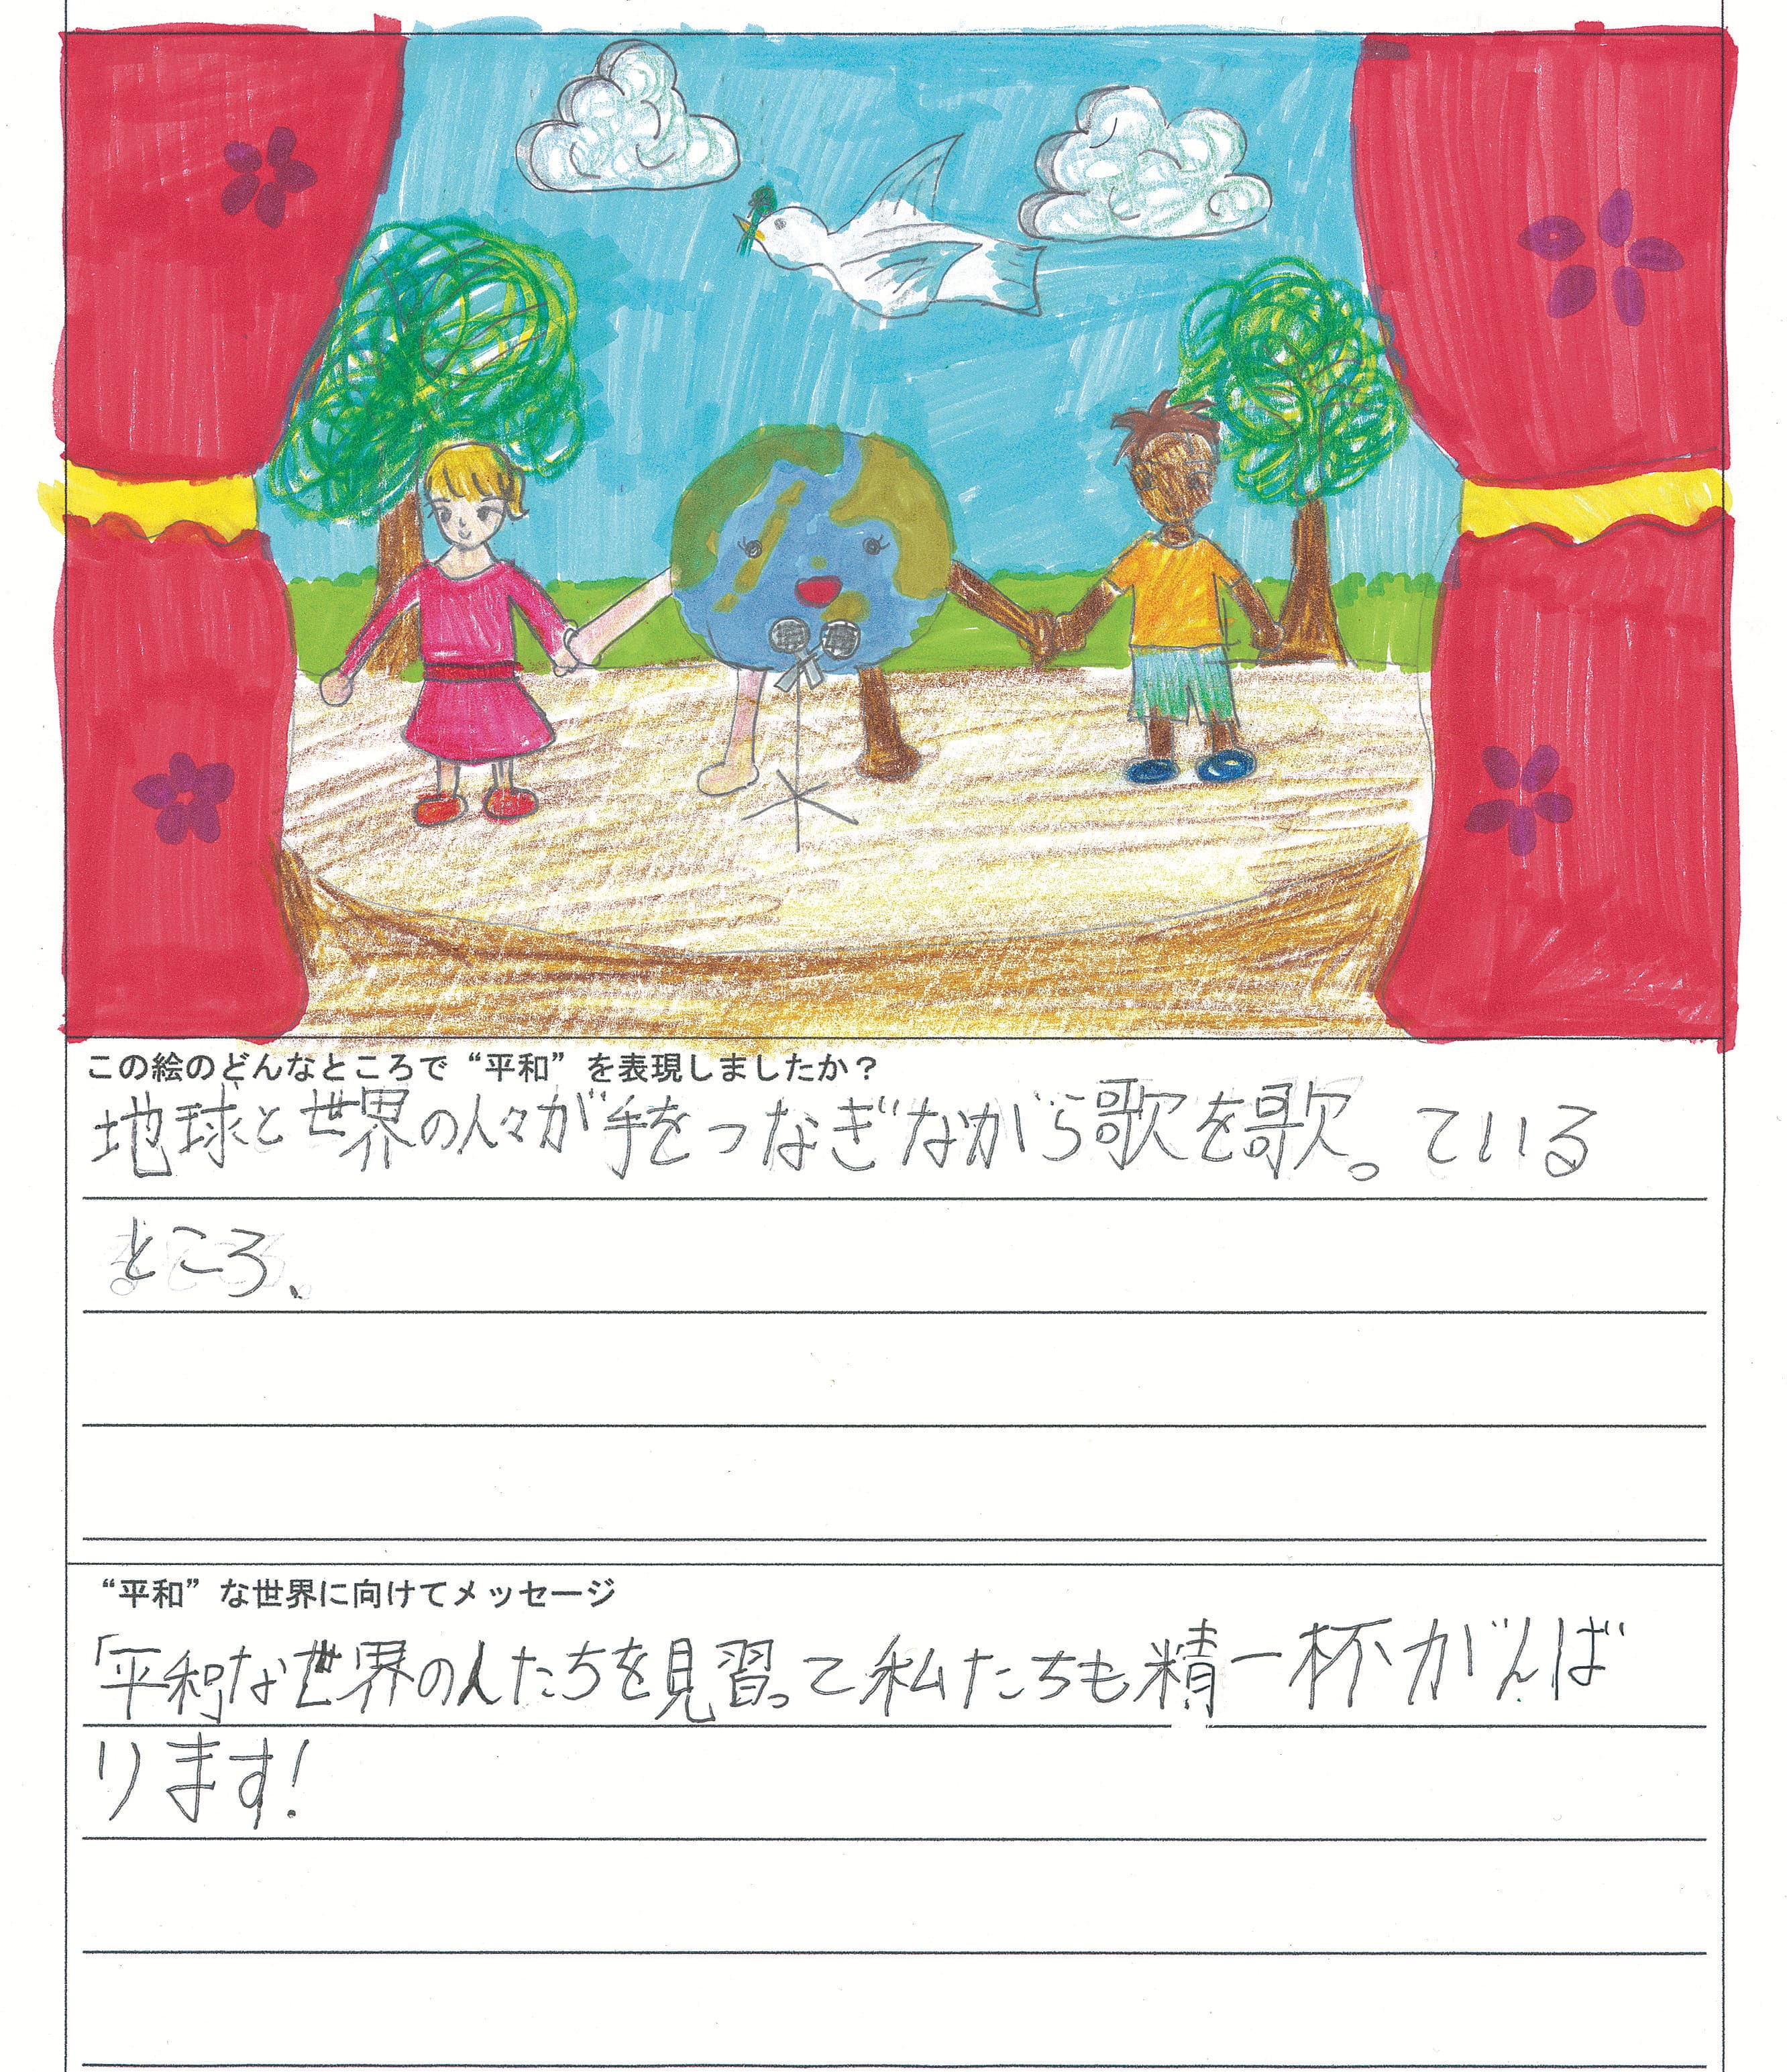 この絵のどんなところで“平和”を表現しましたか？
地球と世界の人々が手をつなぎながら歌を歌っている
ところ、
“平和”な世界に向けてメッセージ
「平和な世界の人たちを見習って私たちも精一杯がんば
ります!